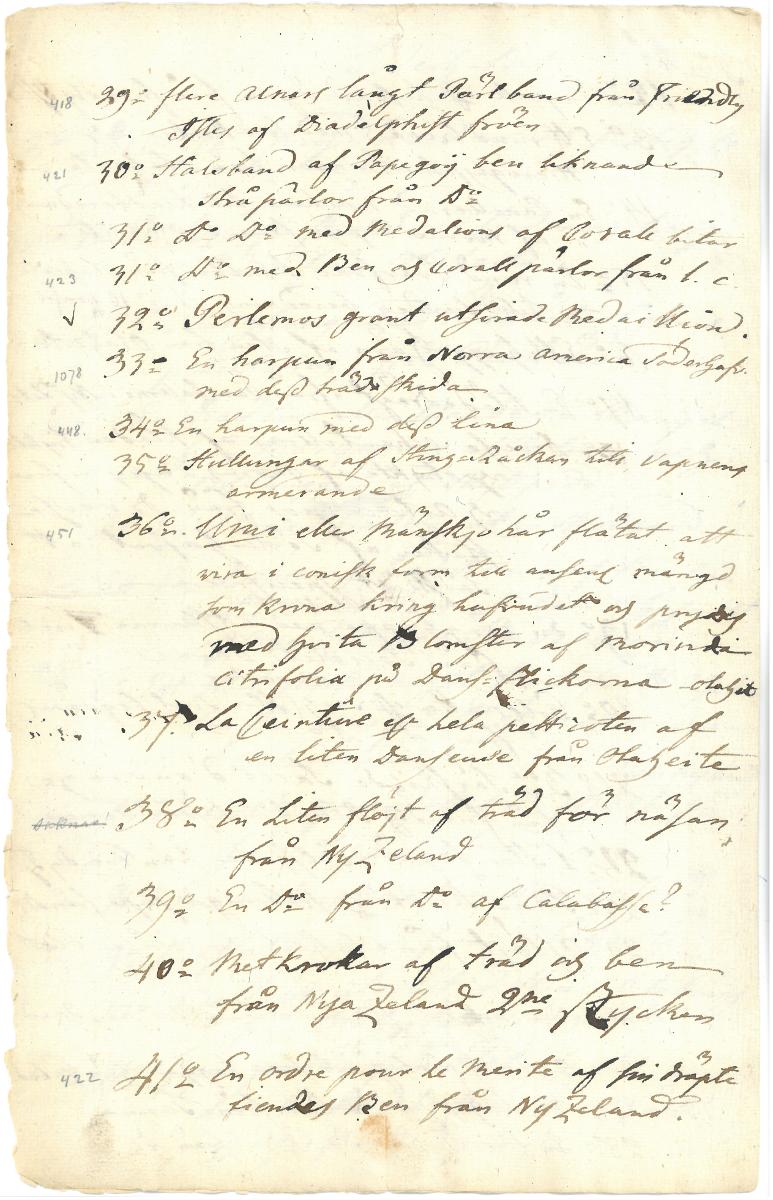 418 29o flere alnars långt Pärlband från Friendly
Isles af Diadelphist fröen
421 30o Halsband af Papegoÿ ben liknande
strå pärlor från Do
31o Do Do med Medalions af Corall bitar
423 31o Do med Ben og Corallpärlor från l. c.
32o Perlemos grant utsirade
1078 33o En harpun från Norra America Söderhafv.
med dess träd skida
448. 34o En harpun med dess Lina
35o Hullungar af Stinge Råckan till vapnens
armerande
451 36o. Umi eller Mänskjo hår flätat att
vira i conisk form till ansenl. mängd
som krona kring hufvudet og prydes
med hvita Blomster af Morinda
citrifolia på Dans-flickorna otaheit
37. La Ceinture eft hela pettizoten af
en liten Dansende från Otaheite
38o En Liten fløjt af träd för näsan,
från Ny Zeland
39o En Do från Do af Calabasse?
40o Metkrokar af träd og ben
från Nya Zeland 2ne Stycken
422 41o En ordre pour le Merite af sin dräpte
fiendes Ben från NyZeland.